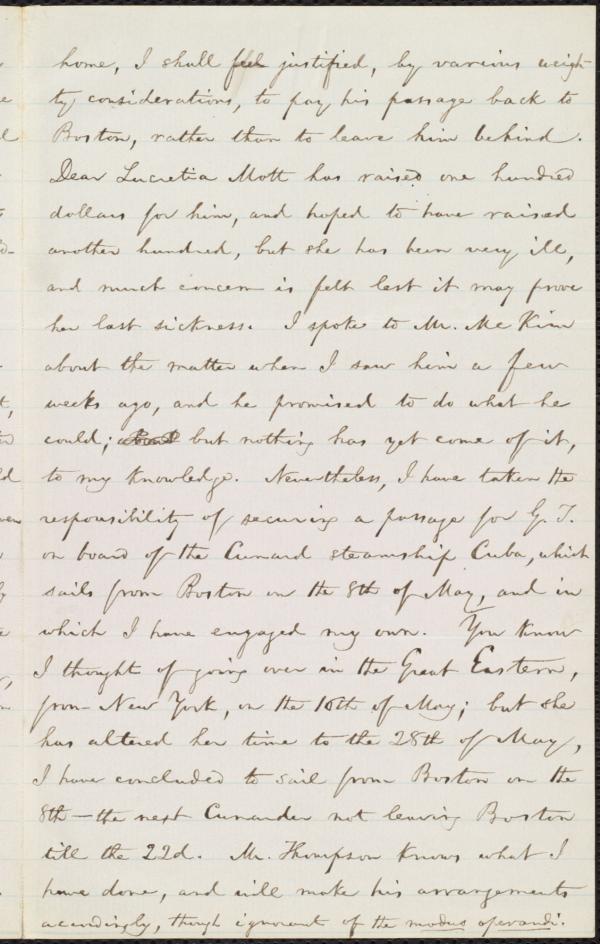 home, I shall feel justified, by various weigh-
ty considerations, to pay his passage back to
Boston, rather than to leave him behind.
Dear Lucretia Mott has raised one hundred
dollars for him, and hoped to have raised
another hundred, but she has been very ill,
and much concern is felt lest it may prove
her last sickness. I spoke to Mr. McKim
about the matter when I saw him a few
weeks ago, and he promised to do what he
could; but nothing has yet come of it,
to my knowledge. Nevertheless, I have taken the
responsibility of securing a passage for G. T.
on board of the Cunard steamship Cuba, which
sails from Boston on the 8th of May, and in
which I have engaged my own. You know
I thought of going over in the Great Eastern,
from New York, on the 16th of May; but she
has altered her time to the 28th of May,
I have concluded to sail from Boston on the
8th — the next Cunarder not leaving Boston
till the 22d. Mr. Thompson knows what I
have done, and will make his arrangements
accordingly, though ignorant of the modus operandi.